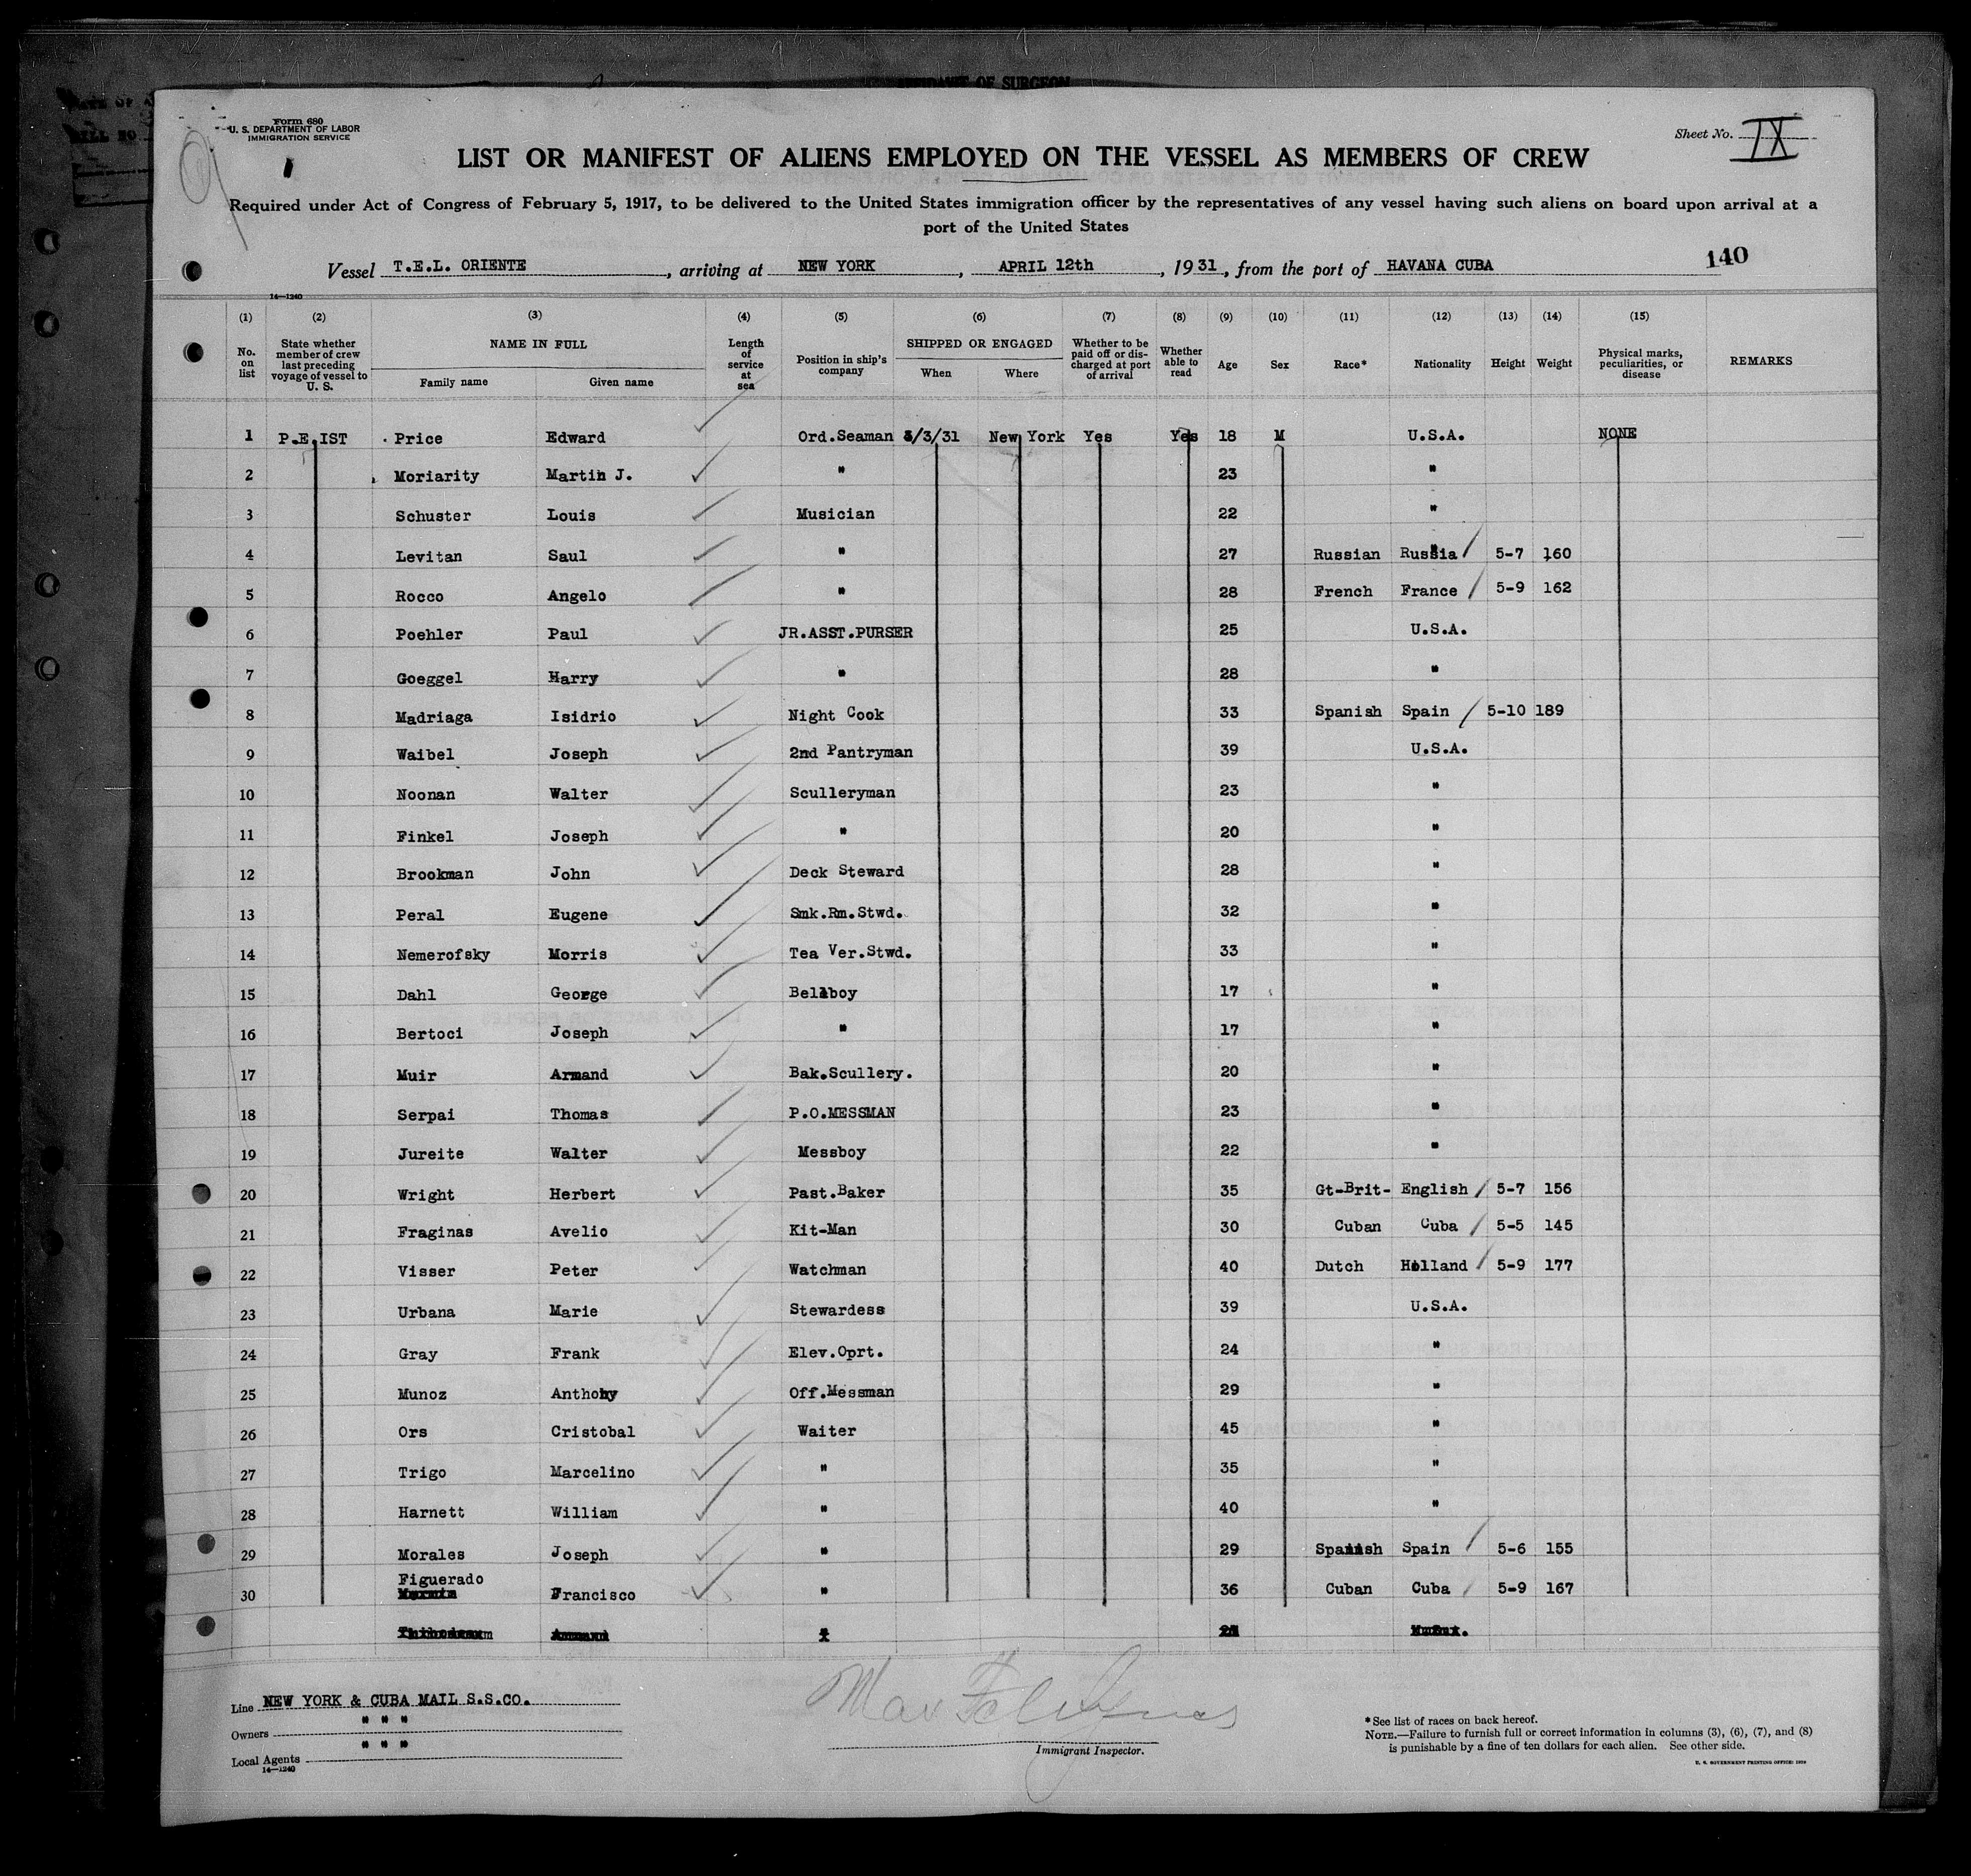 AFFIDAVIT OF SURGEON
Form 680
U. S. DEPARTMENT OF LABOR
IMMIGRATION SERVICE
Sheet No. IX
LIST OR MANIFEST OF ALIENS EMPLOYED ON THE VESSEL AS MEMBERS OF CREW
Required under Act of Congress of February 5, 1917, to be delivered to the United States immigration officer by the representatives of any vessel having such aliens on board upon arrival at a
port of the United States
140
Vessel T.E.L. ORIENTE, arriving at NEW YORK, APRIL 12th, 1931, from the port of HAVANA CUBA
14—1240
(1) (2) (3) (4) (5) (6) (7) (8) (9) (10) (11) (12) (13) (14) (15)
No. on list State whether member of crew last preceding voyage of vessel to U. S. NAME IN FULL Family name Given name Length of service at sea Position in ship's company SHIPPED OR ENGAGED When Where Whether to be paid off or discharged at port of arrival Whether able to read Age Sex Race* Nationality Height Weight Physical marks, peculiarities, or disease REMARKS
1 P.E.IST Price Edward Ord.Seaman 3/3/31 New York Yes Yes 18 M U.S.A. NONE
2 Moriarity Martin J. " 23 "
3 Schuster Louis Musician 22 "
4 Levitan Saul " 27 Russian Russia 5-7 160
5 Rocco Angelo " 28 French France 5-9 162
6 Poehler Paul JR.ASST.PURSER 25 U.S.A.
7 Goeggel Harry " 28 "
8 Madriaga Isidrio Night Cook 33 Spanish Spain 5-10 189
9 Waibel Joseph 2nd Pantryman 39 U.S.A.
10 Noonan Walter Sculleryman 23 "
11 Finkel Joseph " 20 "
12 Brookman John Deck Steward 28 "
13 Peral Eugene Smk.Rm.Stwd. 32 "
14 Nemerofsky Morris Tea Ver.Stwd. 33 "
15 Dahl George Bellboy 17 "
16 Bertoci Joseph " 17 "
17 Muir Armand Bak.Scullery. 20 "
18 Serpai Thomas P.O.MESSMAN 23 "
19 Jureite Walter Messboy 22 "
20 Wright Herbert Past.Baker 35 Gt-Brit- English 5-7 156
21 Fraginas Avelio Kit-Man 30 Cuban Cuba 5-5 145
22 Visser Peter Watchman 40 Dutch Holland 5-9 177
23 Urbana Marie Stewardess 39 U.S.A.
24 Gray Frank Elev.Oprt. 24 "
25 Munoz Anthony Off.Messman 29 "
26 Ors Cristobal Waiter 45 "
27 Trigo Marcelino " 35 "
28 Harnett William " 40 "
29 Morales Joseph " 29 Spanish Spain 5-6 155
30 Figuerado Francisco " 36 Cuban Cuba 5-9 167
Line NEW YORK & CUBA MAIL S.S.CO.
Owners " " "
Local Agents " " "
14—1240
Immigrant Inspector.
*See list of races on back hereof.
NOTE.—Failure to furnish full or correct information in columns (3), (6), (7), and (8)
is punishable by a fine of ten dollars for each alien. See other side.
U. S. GOVERNMENT PRINTING OFFICE: 1929